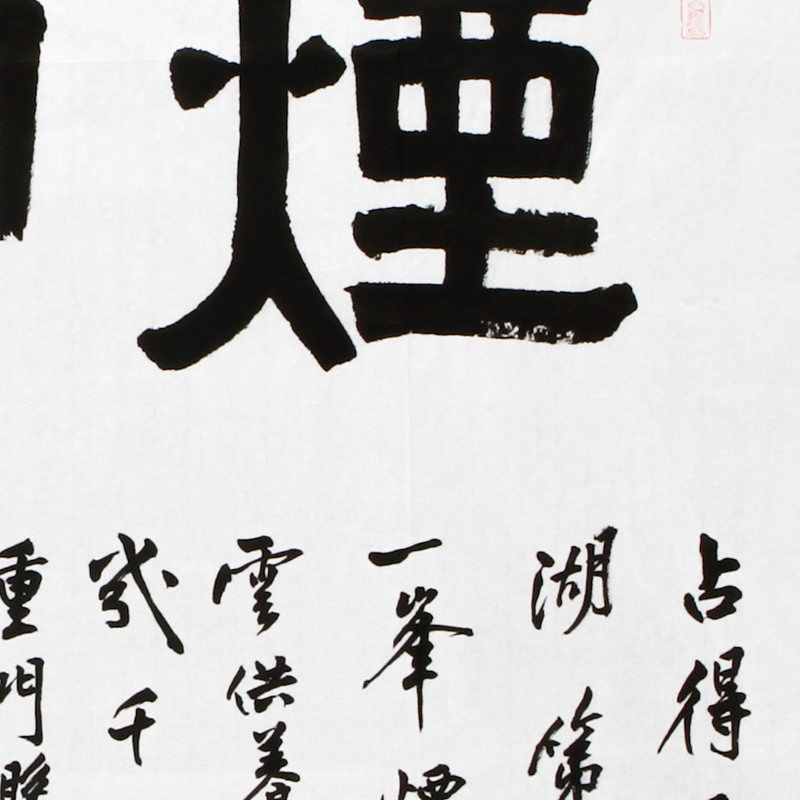 煙
占得
湖第
一峯煙
雲供養
幾千
重門